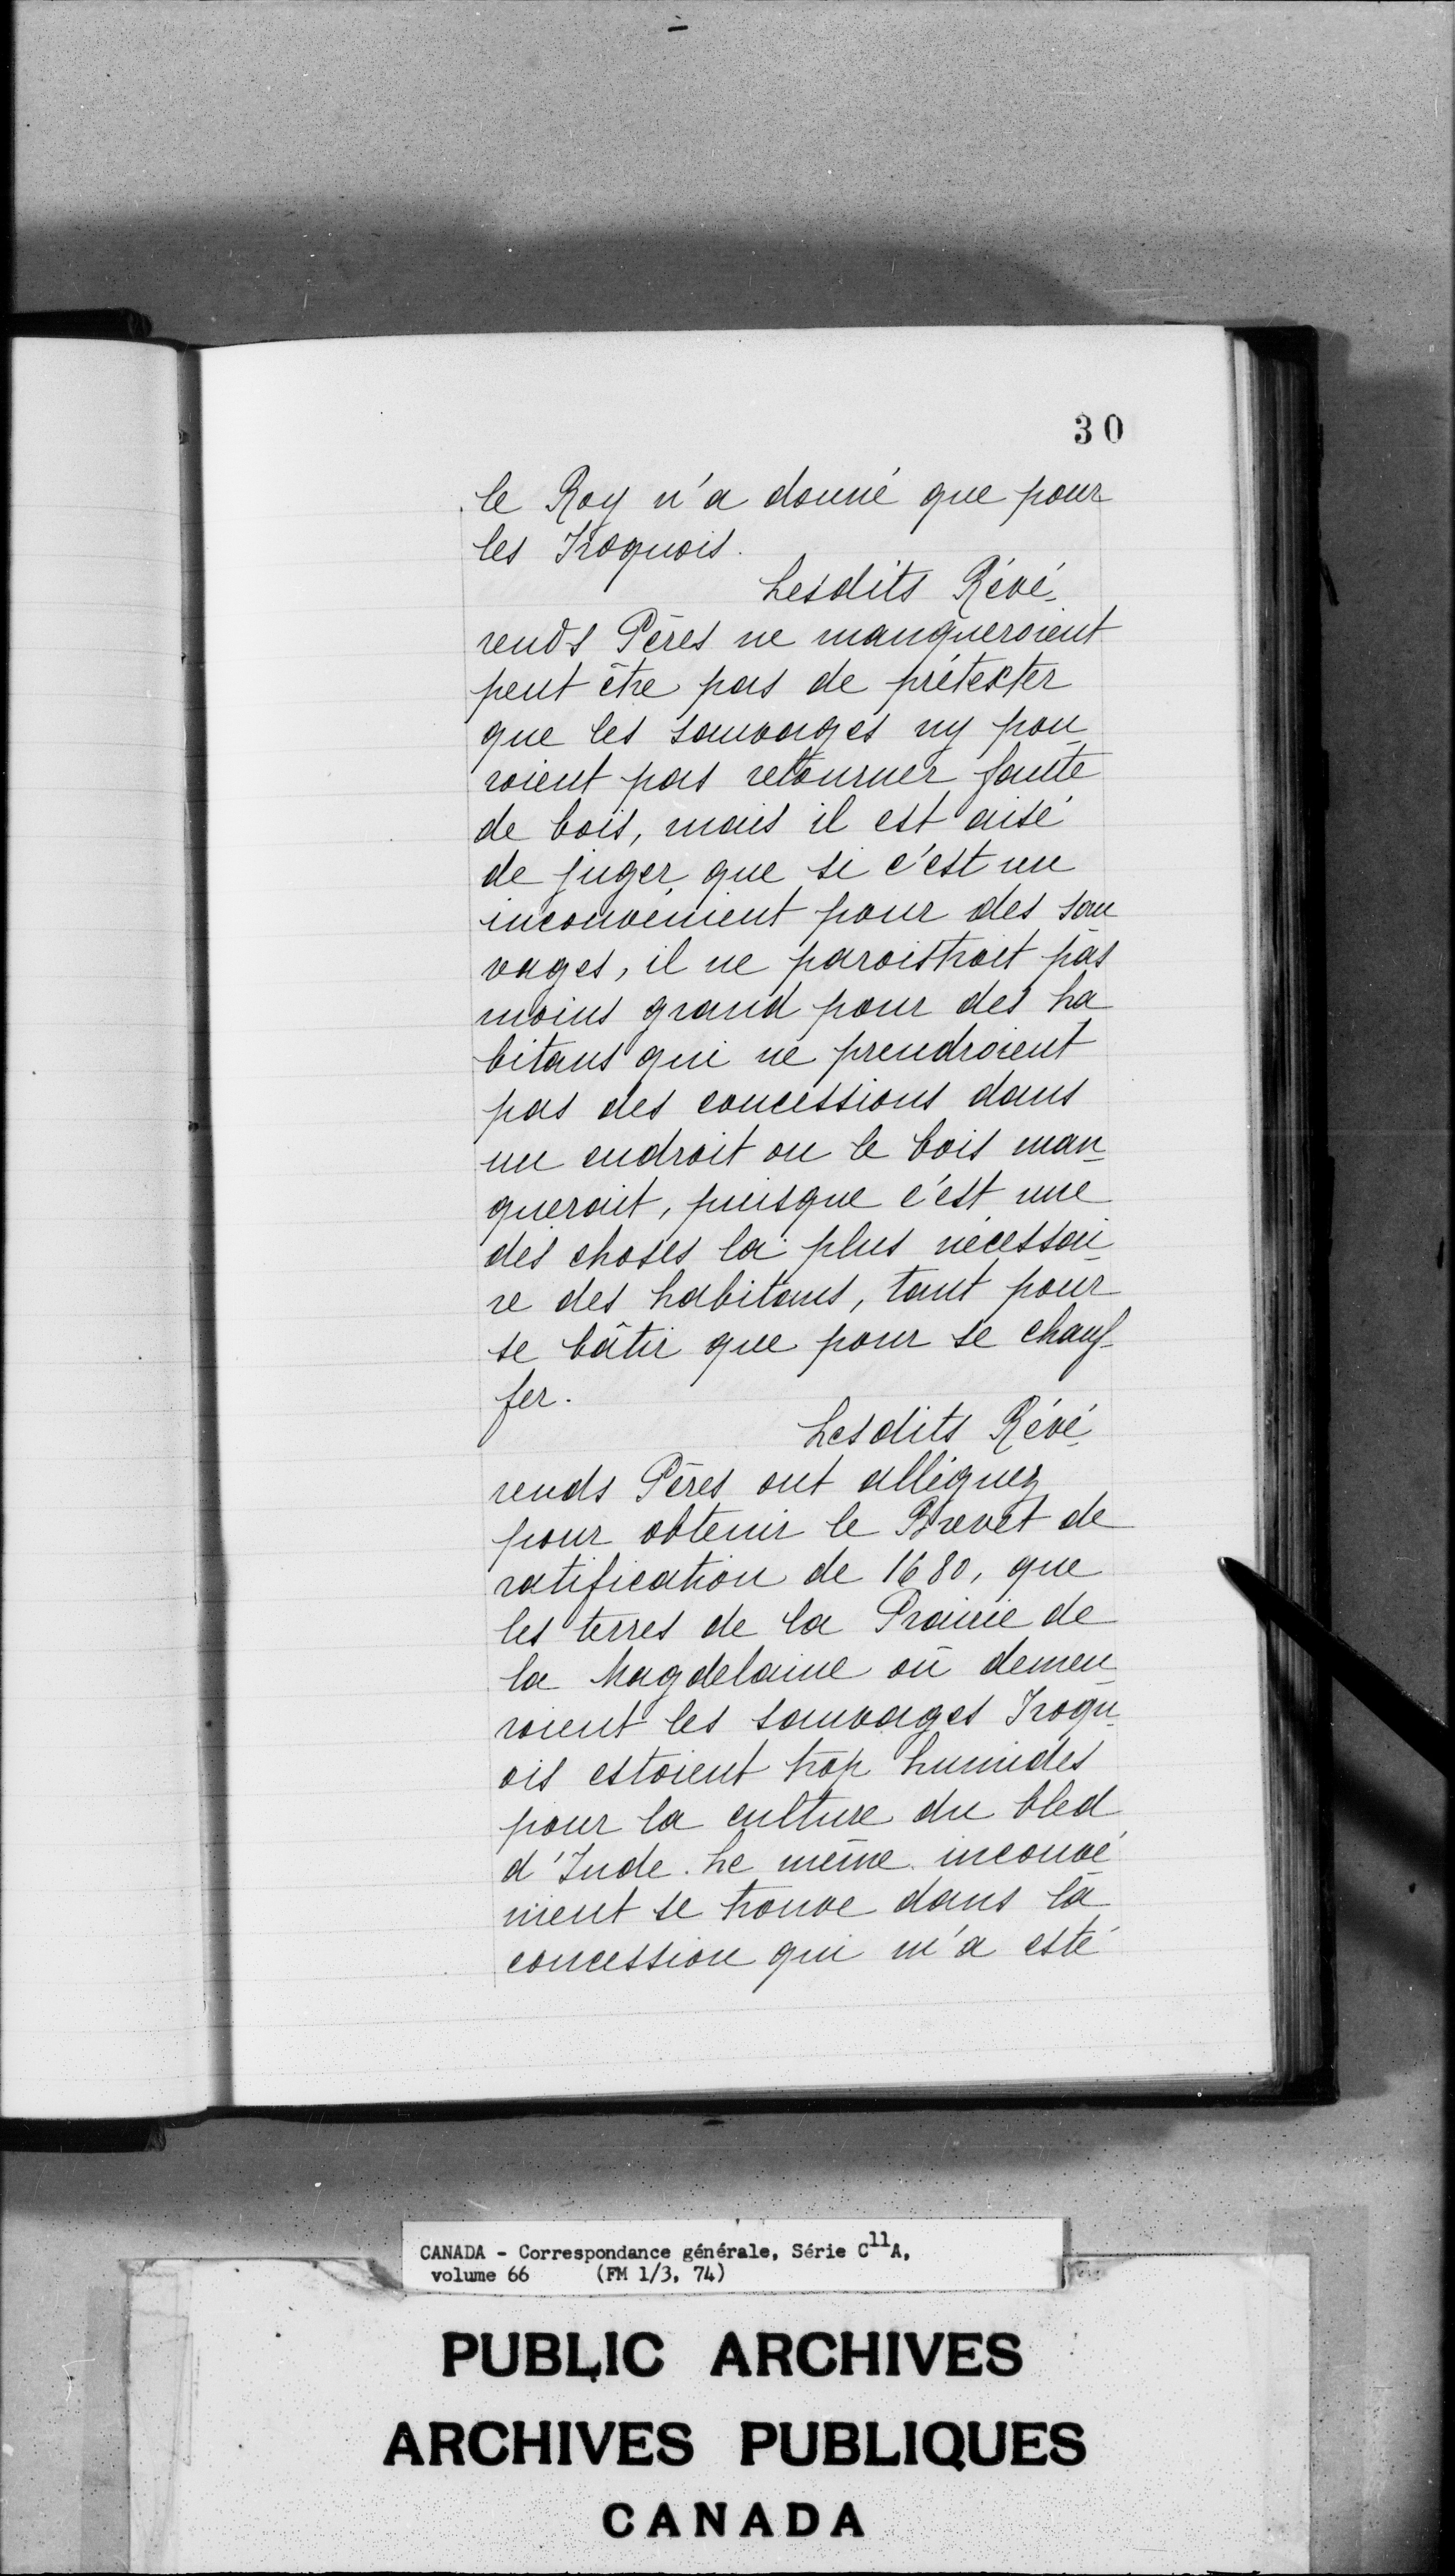 30
le Roy n'a donné que pour
les Iroquois.
Lesdits Révé-
rends Pères ne manqueroient
peut être pas de prétexter
que les sauvages ny pou-
roient pas retourner faute
de bois, mais il est aisé
de juger que si c'est un
inconvénient pour des sau-
vages, il ne paroistroit pas
moins grand pour des ha-
bitans qui ne prendroient
pas des concessions dans
un endroit ou le bois man-
querait, puisque c'est une
des choses la plus nécessai-
re des habitans, tant pour
se bâtir que pour se chauf-
fer.
Lesdits Révé-
rends Pères ont alléguez
pour obtenir le Brevet de
ratification de 1680, que
les terres de la Prairie de
la Magdelaine où demeu-
roient les sauvages Iroqu-
ois estoient trop humides
pour la culture du bled
d'Inde. Le même inconvé-
nient se trouve dans la
concession qui m'a esté
CANADA - Correspondance générale, Série C11A,
volume 66 (FM 1/3, 74)
PUBLIC ARCHIVES
ARCHIVES PUBLIQUES
CANADA